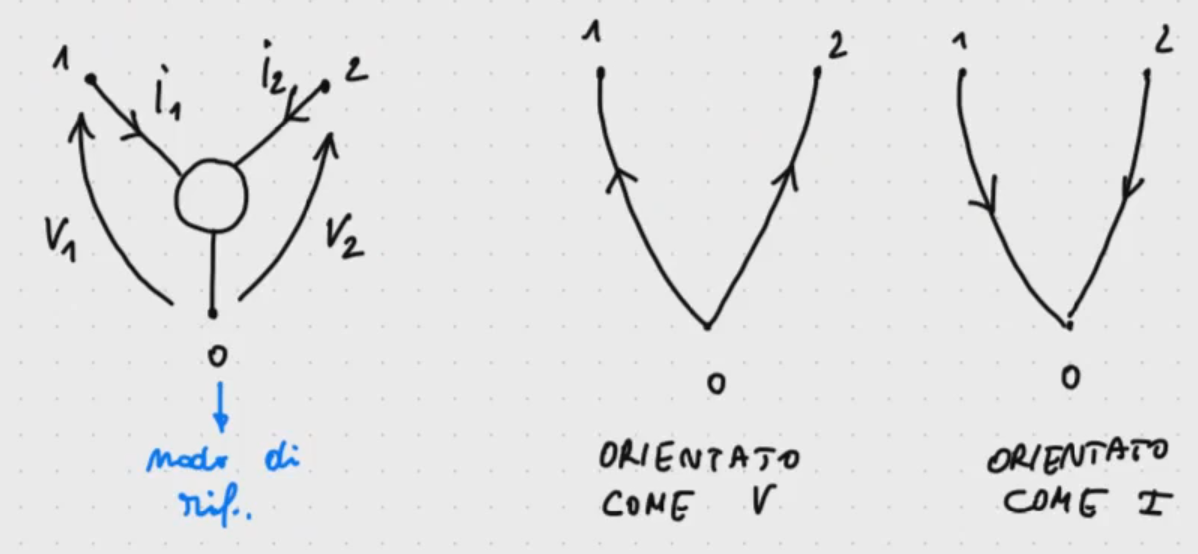 1
i₁
i₂
2
V₁
V₂
0
nodo di
rif.
1
2
0
ORIENTATO
COME V
1
2
0
ORIENTATO
COME I